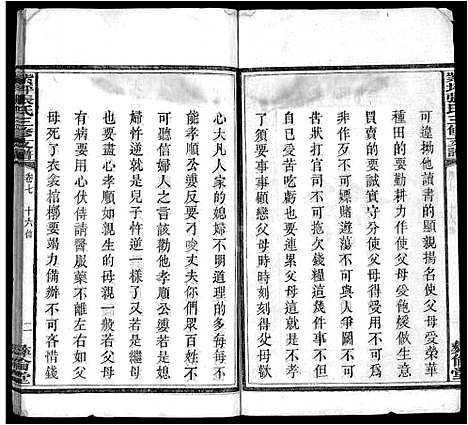 紫坪張氏三修支譜
可違拗他讀書的顯親揚名使父母受榮華
種田的要勤耕力作使父母受飽緩做生意
買賣的要誠實守分使父母得受用不可爭
田奪産不可嫖賭遊蕩不可與人爭鬭不可
告狀打官司不可拖欠錢糧這幾件事不但
害自己的身家還要連累父母這就是不孝
了要事事順戀父母時時刻刻得得父母歡
彝倫堂
心大凡人家的媳婦不明道理的多每每不
孝順公婆更要刁唆丈夫你們衆百姓不
可聽信婦人之言該勸他孝順公婆若是媳
婦忤逆就是兒子忤逆一樣了又若是繼母
也要盡心孝順如親生的母親一般若父母
有病要用心伏侍請醫服藥不離左右如父
母死了衣衾棺槨要竭力備辦不可吝惜錢
紫坪張氏三修支譜
卷七
二
彝倫堂